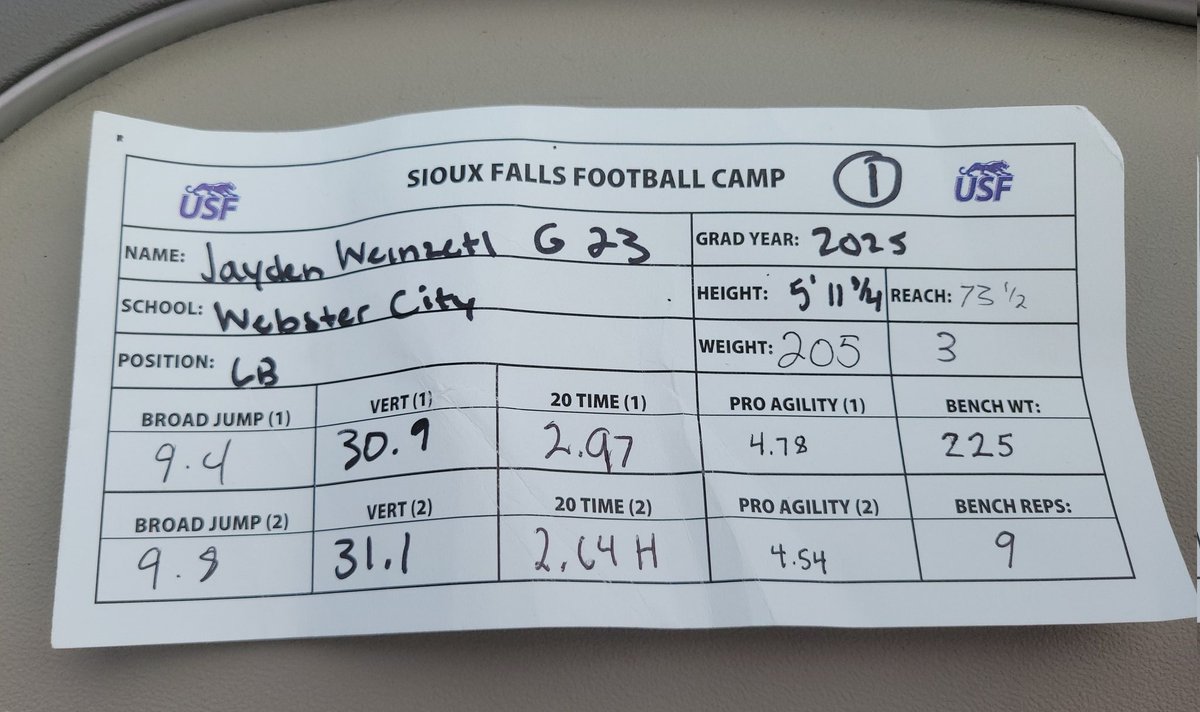 USF SIOUX FALLS FOOTBALL CAMP 1 USF
NAME: Jayden Weinzetl G 23 GRAD YEAR: 2025
SCHOOL: Webster City HEIGHT: 5' 11 3/4 REACH: 73 1/2
POSITION: LB WEIGHT: 205 3
BROAD JUMP (1) VERT (1) 20 TIME (1) PRO AGILITY (1) BENCH WT:
9.4 30.9 2.97 4.78 225
BROAD JUMP (2) VERT (2) 20 TIME (2) PRO AGILITY (2) BENCH REPS:
9.8 31.1 2.64 H 4.54 9